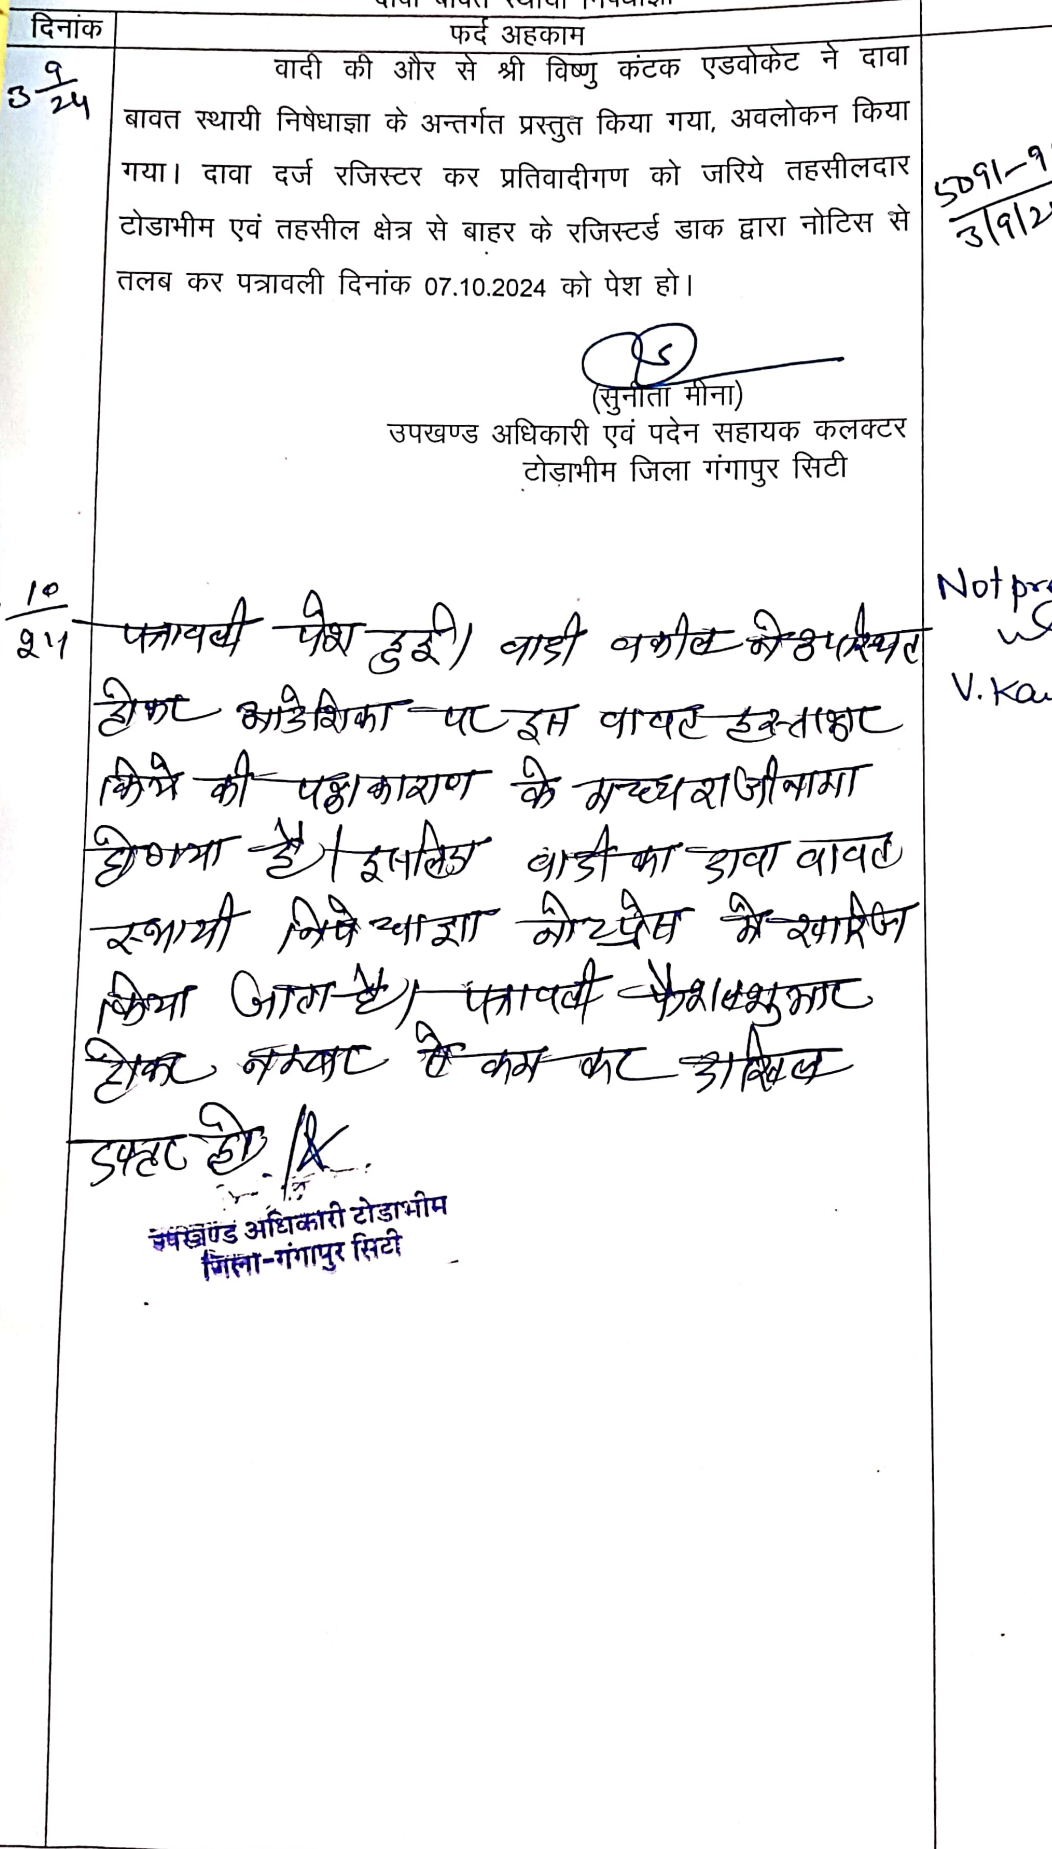 दावा बावत स्थायी निषेधाज्ञा
दिनांक
फर्द अहकाम
3 9/24
वादी की और से श्री विष्णु कंटक एडवोकेट ने दावा
बावत स्थायी निषेधाज्ञा के अन्तर्गत प्रस्तुत किया गया, अवलोकन किया
गया। दावा दर्ज रजिस्टर कर प्रतिवादीगण को जरिये तहसीलदार
टोडाभीम एवं तहसील क्षेत्र से बाहर के रजिस्टर्ड डाक द्वारा नोटिस से
तलब कर पत्रावली दिनांक 07.10.2024 को पेश हो।
5091-9
3/9/2
(सुनीता मीना)
उपखण्ड अधिकारी एवं पदेन सहायक कलक्टर
टोड़ाभीम जिला गंगापुर सिटी
10/24
पत्रावली पेश हुई। वादी वकील ने उपस्थित
होकर आदेशिका पर इस वावत हस्ताक्षर
किये की पक्षकाराण के मध्य राजीनामा
होगया है। इसलिए वादी का दावा वावत
स्थायी निषेधाज्ञा नोटप्रेस मे खारिज
किया जाता है। पत्रावली फैशलशुमार
होकर नम्बर से कम कर दाखिल
दफ्तर हो।
Not pre
V. Ka
उपखण्ड अधिकारी टोडाभीम
जिला-गंगापुर सिटी